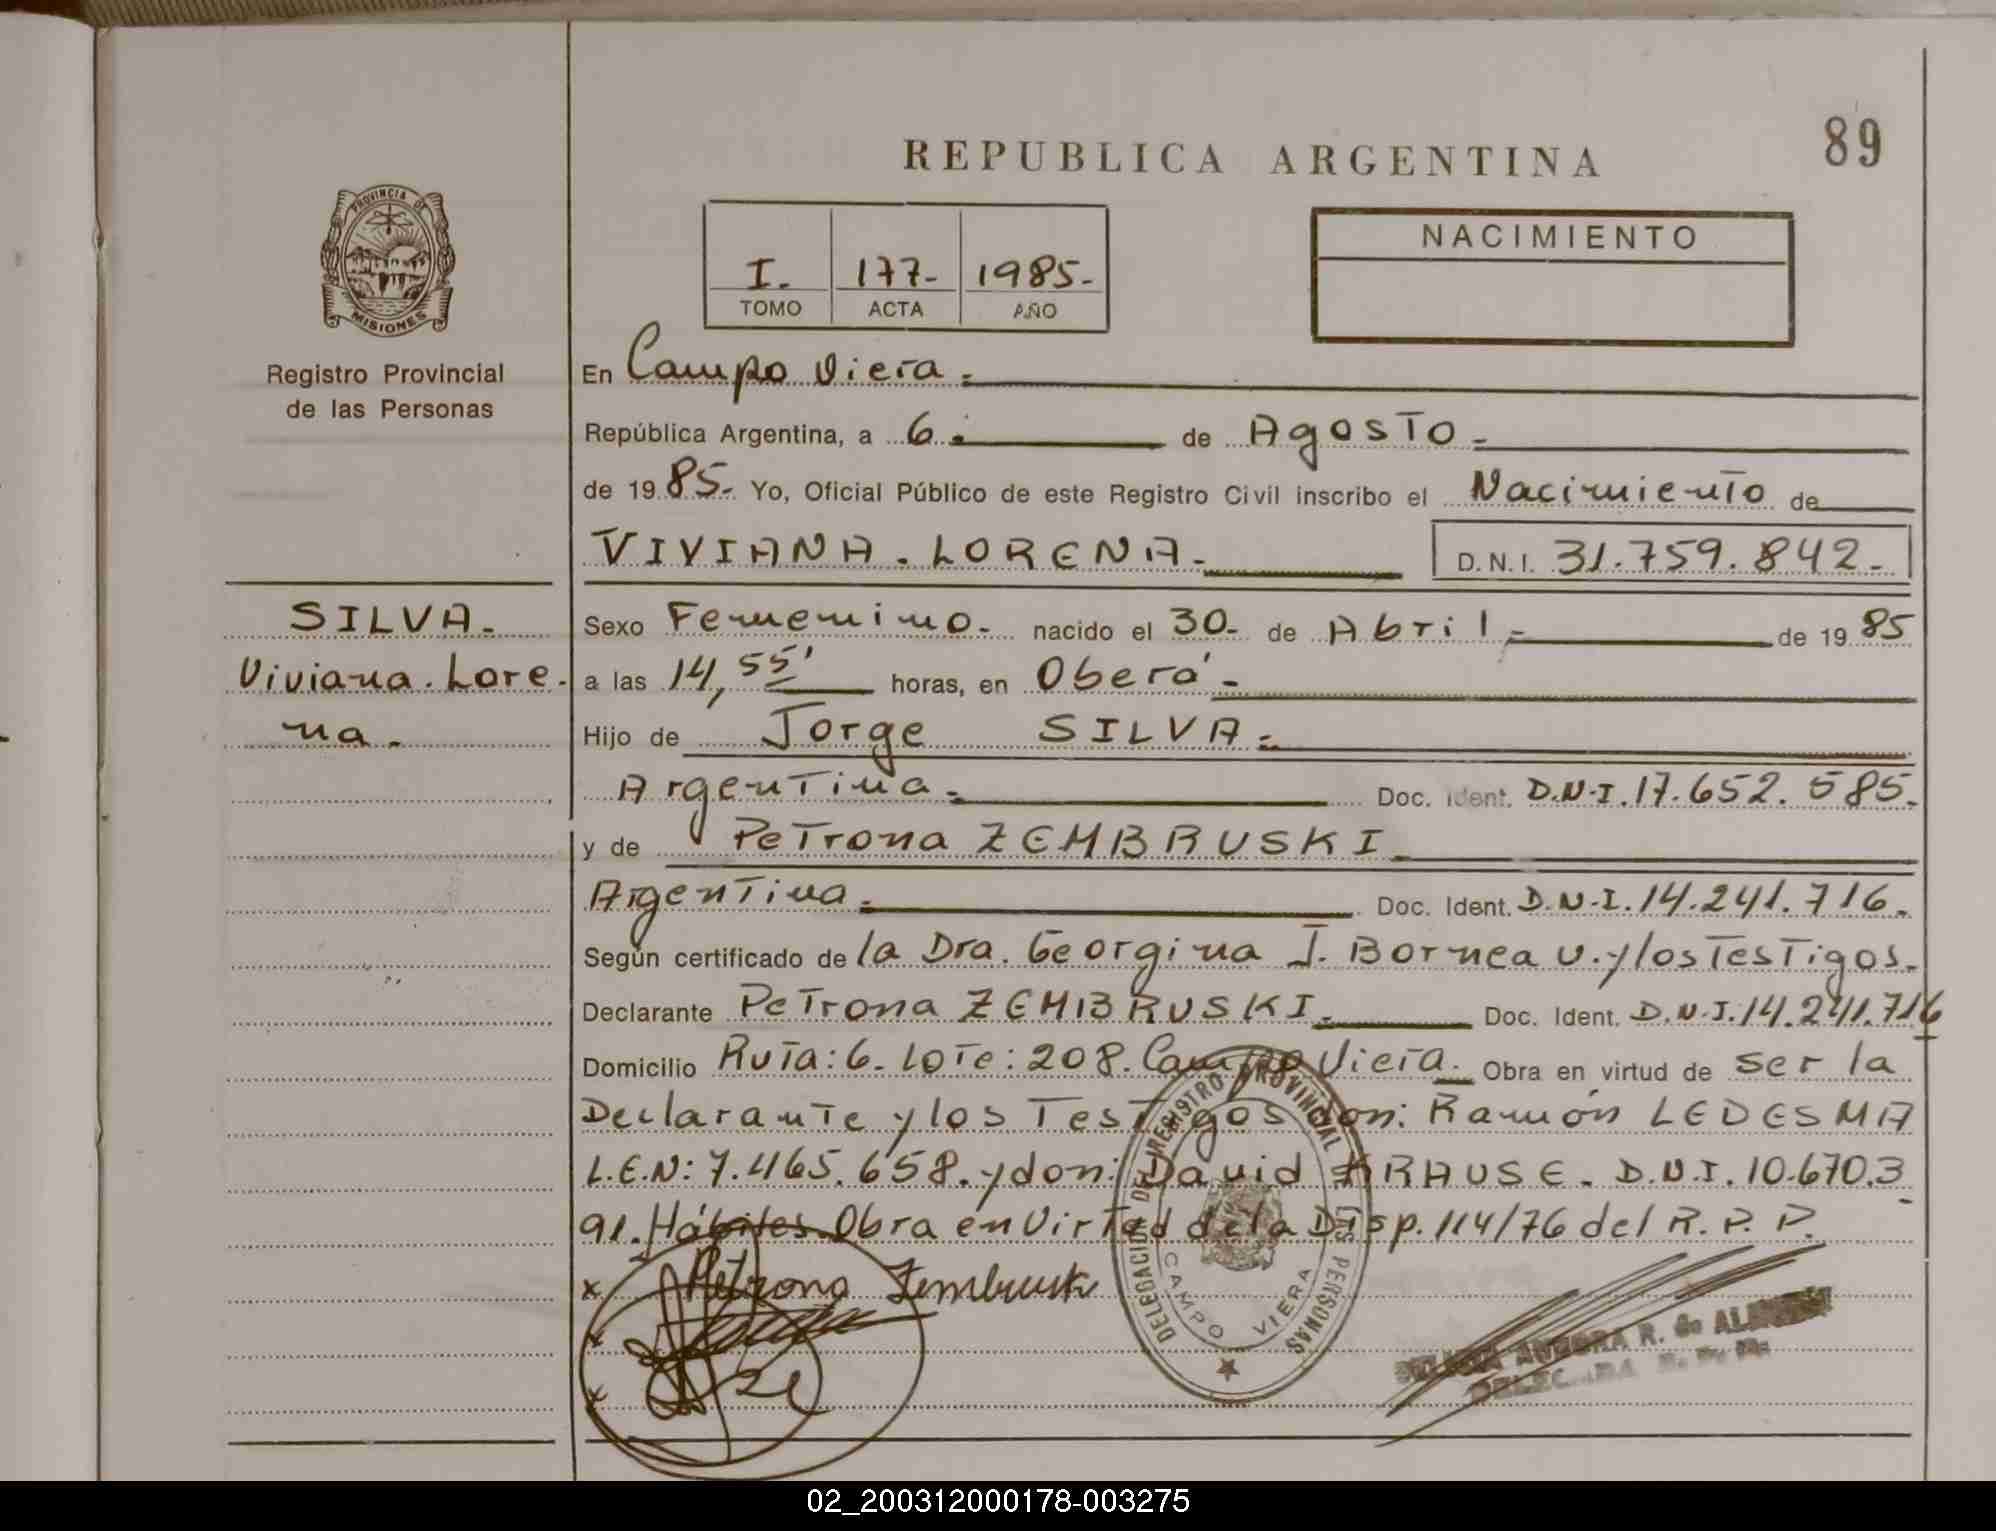 89
REPUBLICA ARGENTINA
PROVINCIA DE
MISIONES
NACIMIENTO
I. 177- 1985-
TOMO ACTA AÑO
Registro Provincial
de las Personas
En Campo Viera.
República Argentina, a 6. de Agosto
de 1985. Yo, Oficial Público de este Registro Civil inscribo el Nacimiento de
VIVIANA. LORENA. D.N.I. 31.759.842-
SILVA.
Viviana. Lore-
na.
Sexo Femenino. nacido el 30- de Abril de 1985
a las 14,55' horas, en Oberá
Hijo de Jorge SILVA
Argentina. Doc. Ident. D.N.I. 17.652.585.
y de Petrona ZEMBRUSKI
Argentina. Doc. Ident. D.N.I. 14.241.716.
Según certificado de la Dra. Georgina J. Bornea v. y los Testigos.
Declarante Petrona ZEMBRUSKI. Doc. Ident. D.N.I. 14.241.716
Domicilio Ruta: 6. Lote: 208. Campo Viera. Obra en virtud de ser la
Declarante y los Testigos don: Ramón LEDESMA
L.E.N: 7.465.658. y don: David KRAUSE. D.N.I. 10.670.3
91. Hábiles. Obra en Virtud de la Disp. 114/76 del R. P. P.
x Petrona Zembruski
x
x
DELEGACION DEL REGISTRO PROVINCIAL DE LAS PERSONAS
CAMPO VIERA
R. de
02_200312000178-003275